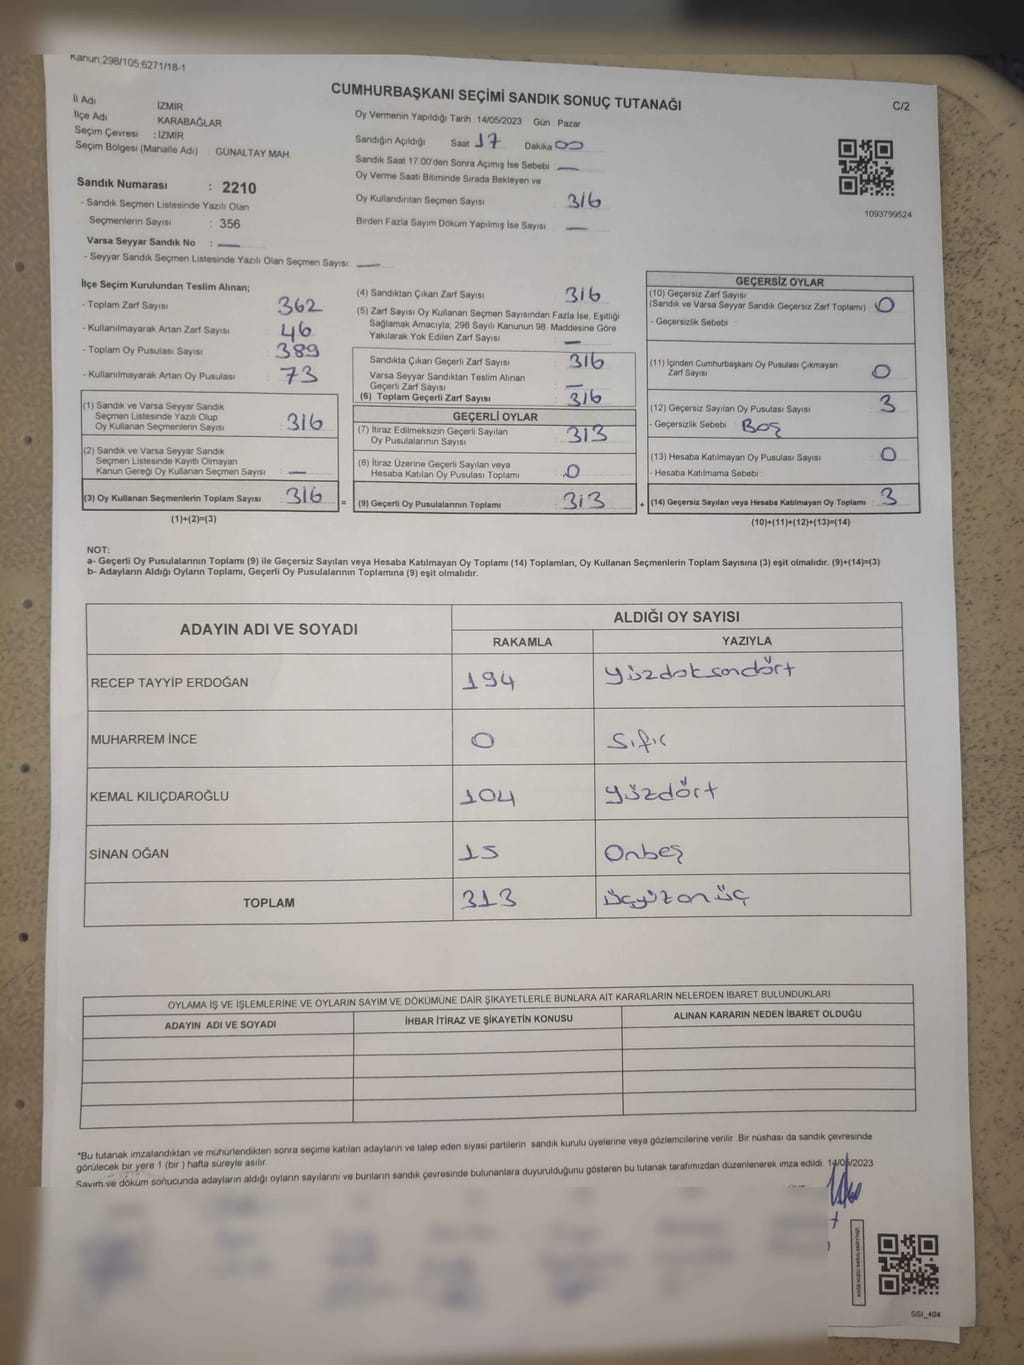 Kanun;298/105,6271/18-1
CUMHURBAŞKANI SEÇİMİ SANDIK SONUÇ TUTANAĞI
C/2
İl Adı : İZMİR
İlçe Adı : KARABAĞLAR
Seçim Çevresi : İZMİR
Seçim Bölgesi (Mahalle Adı) GÜNALTAY MAH
Sandık Numarası : 2210
- Sandık Seçmen Listesinde Yazılı Olan
Seçmenlerin Sayısı : 356
Varsa Seyyar Sandık No : —
- Seyyar Sandık Seçmen Listesinde Yazılı Olan Seçmen Sayısı: —
Oy Vermenin Yapıldığı Tarih 14/05/2023 Gün : Pazar
Sandığın Açıldığı Saat 17 Dakika 00
Sandık Saat 17:00'den Sonra Açımış İse Sebebi —
Oy Verme Saati Bitiminde Sırada Bekleyen ve
Oy Kullandırılan Seçmen Sayısı : 316
Birden Fazla Sayım Döküm Yapılmış İse Sayısı : —
1093799524
İlçe Seçim Kurulundan Teslim Alınan;
- Toplam Zarf Sayısı : 362
- Kullanılmayarak Artan Zarf Sayısı : 46
- Toplam Oy Pusulası Sayısı : 389
- Kullanılmayarak Artan Oy Pusulası : 73
(1) Sandık ve Varsa Seyyar Sandık
Seçmen Listesinde Yazılı Olup
Oy Kullanan Seçmenlerin Sayısı : 316
(2) Sandık ve Varsa Seyyar Sandık
Seçmen Listesinde Kayıtlı Olmayan
Kanun Gereği Oy Kullanan Seçmen Sayısı : —
(3) Oy Kullanan Seçmenlerin Toplam Sayısı : 316 =
(1)+(2)=(3)
(4) Sandıktan Çıkan Zarf Sayısı : 316
(5) Zarf Sayısı Oy Kullanan Seçmen Sayısından Fazla İse, Eşitliği
Sağlamak Amacıyla; 298 Sayılı Kanunun 98. Maddesine Göre
Yakılarak Yok Edilen Zarf Sayısı : —
Sandıkta Çıkan Geçerli Zarf Sayısı : 316
Varsa Seyyar Sandıktan Teslim Alınan
Geçerli Zarf Sayısı : —
(6) Toplam Geçerli Zarf Sayısı : 316
GEÇERLİ OYLAR
(7) İtiraz Edilmeksizin Geçerli Sayılan
Oy Pusulalarının Sayısı : 313
(8) İtiraz Üzerine Geçerli Sayılan veya
Hesaba Katılan Oy Pusulası Toplamı : 0
(9) Geçerli Oy Pusulalarının Toplamı : 313 +
GEÇERSİZ OYLAR
(10) Geçersiz Zarf Sayısı
(Sandık ve Varsa Seyyar Sandık Geçersiz Zarf Toplamı) : 0
- Geçersizlik Sebebi :
(11) İçinden Cumhurbaşkanı Oy Pusulası Çıkmayan
Zarf Sayısı : 0
(12) Geçersiz Sayılan Oy Pusulası Sayısı : 3
- Geçersizlik Sebebi : Boş
(13) Hesaba Katılmayan Oy Pusulası Sayısı : 0
- Hesaba Katılmama Sebebi :
(14) Geçersiz Sayılan veya Hesaba Katılmayan Oy Toplamı : 3
(10)+(11)+(12)+(13)=(14)
NOT:
a- Geçerli Oy Pusulalarının Toplamı (9) ile Geçersiz Sayılan veya Hesaba Katılmayan Oy Toplamı (14) Toplamları, Oy Kullanan Seçmenlerin Toplam Sayısına (3) eşit olmalıdır. (9)+(14)=(3)
b- Adayların Aldığı Oyların Toplamı, Geçerli Oy Pusulalarının Toplamına (9) eşit olmalıdır.
ADAYIN ADI VE SOYADI ALDIĞI OY SAYISI
RAKAMLA YAZIYLA
RECEP TAYYİP ERDOĞAN 194 Yüzdoksandört
MUHARREM İNCE 0 Sıfır
KEMAL KILIÇDAROĞLU 104 Yüzdört
SİNAN OĞAN 15 Onbeş
TOPLAM 313 Üçyüzonüç
OYLAMA İŞ VE İŞLEMLERİNE VE OYLARIN SAYIM VE DÖKÜMÜNE DAİR ŞİKAYETLERLE BUNLARA AİT KARARLARIN NELERDEN İBARET BULUNDUKLARI
ADAYIN ADI VE SOYADI İHBAR İTİRAZ VE ŞİKAYETİN KONUSU ALINAN KARARIN NEDEN İBARET OLDUĞU
*Bu tutanak imzalandıktan ve mühürlendikten sonra seçime katılan adayların ve talep eden siyasi partilerin sandık kurulu üyelerine veya gözlemcilerine verilir. Bir nüshası da sandık çevresinde
görülecek bir yere 1 (bir ) hafta süreyle asılır.
Sayım ve döküm sonucunda adayların aldığı oyların sayılarını ve bunların sandık çevresinde bulunanlara duyurulduğunu gösteren bu tutanak tarafımızdan düzenlenerek imza edildi. 14/05/2023
SSI_404